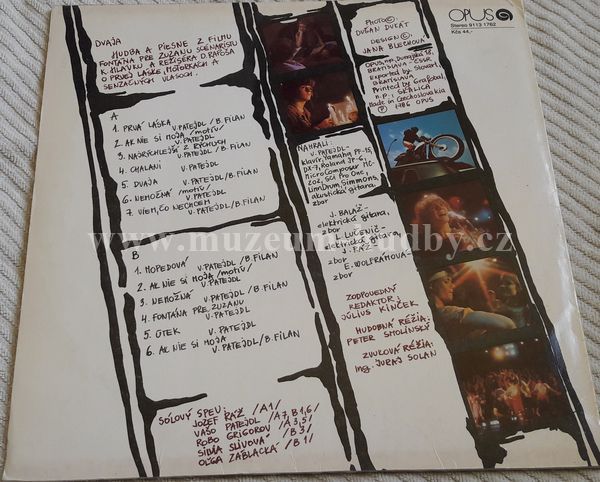 DVAJA
HUDBA A PIESNE Z FILMU
FONTÁNA PRE ZUZANU SCENÁRISTU
K. HLAVKU A REŽISÉRA D. RAPOŠA
O PRVEJ LÁSKE, MOTORKÁCH A
SENZAČNÝCH VLASOCH.
A
1. PRVÁ LÁSKA V. PATEJDL / B. FILAN
2. AK NIE SI MOJA /motív/
V. PATEJDL
3. NAJRÝCHLEJŠÍ Z RÝCHLYCH
V. PATEJDL / B. FILAN
4. CHALANI V. PATEJDL
5. DVAJA V. PATEJDL / B. FILAN
6. NEMOŽNÁ /motív/
V. PATEJDL
7. VIEM, ČO NECHCEM
V. PATEJDL / B. FILAN
B
1. MOPEDOVÁ
V. PATEJDL / B. FILAN
2. AK NIE SI MOJA /motív/
V. PATEJDL
3. NEMOŽNÁ
V. PATEJDL / B. FILAN
4. FONTÁNA PRE ZUZANU
V. PATEJDL / B. FILAN
5. ÚTEK
V. PATEJDL
6. AK NIE SI MOJA
V. PATEJDL / B. FILAN
SÓLOVÝ SPEV:
JOZEF RÁŽ /A1/
VAŠO PATEJDL /A7, B1, 6/
ROBO GRIGOROV /A3, 5/
SILVIA SLIVOVÁ /B3/
OĽGA ZÁBLACKÁ /B1/
NAHRALI:
V. PATEJDL-
klavír, Yamaha PF-15,
DX-7, Roland JP-6,
MicroComposer MC-
202, SCI Pro One,
LinnDrum, Simmons,
akustická gitara,
zbor
J. BALÁŽ-
elektrická gitara,
zbor
Ľ. LUČENIČ-
elektrická gitara,
J. RÁŽ-
zbor
E. WOLFRAMOVÁ-
zbor
ZODPOVEDNÝ
REDAKTOR:
JÚLIUS KINČEK
HUDOBNÁ RÉŽIA:
PETER SMOLINSKÝ
ZVUKOVÁ RÉŽIA:
Ing. JURAJ SOLAN
PHOTO ©:
DUŠAN DUKÁT
DESIGN ©:
JANA BLECHOVÁ
OPUS, n.p., Dunajská 18,
BRATISLAVA, ČSSR
Exported by Slovart,
BRATISLAVA
Printed by Grafobal,
n.p., SKALICA
Made in Czechoslovakia
Ⓟ 1986 OPUS
OPUS
Stereo 9113 1762
Kčs 44,-
www.muzeumhudby.cz